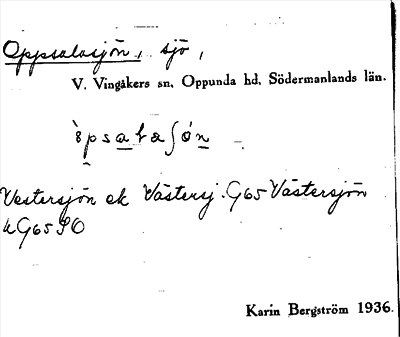 Oppsalasjön, sjö,
V. Vingåkers sn, Oppunda hd, Södermanlands län.
Vestersjön ek Västersj. G65 Västersjön
G65 SO
Karin Bergström 1936.